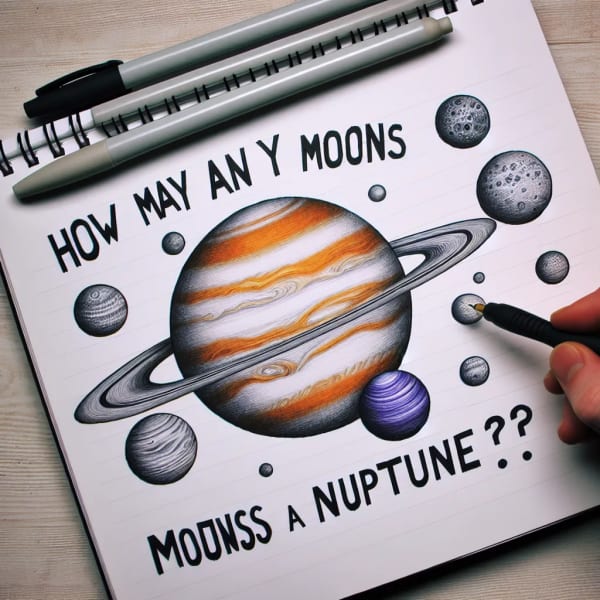 HOW MAY AN Y MOONS
MOONSS A NUPTUNE ??